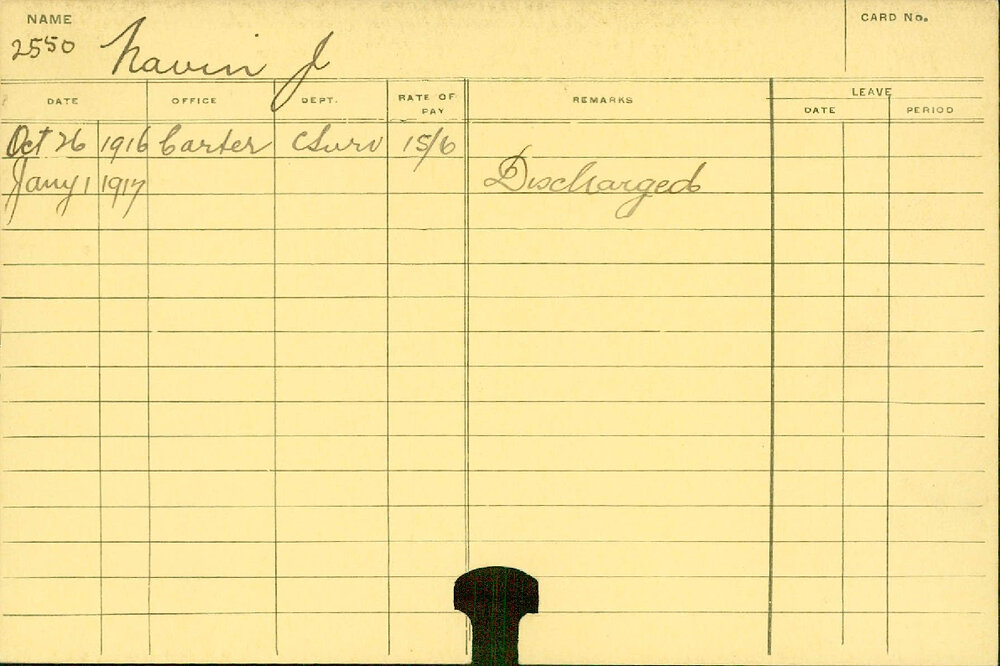 NAME
CARD No.
2550 Navin J
DATE OFFICE DEPT. RATE OF PAY REMARKS LEAVE
DATE PERIOD
Oct 26 1916 Carter CSurv 15/6
Jany 1 1917 Discharged